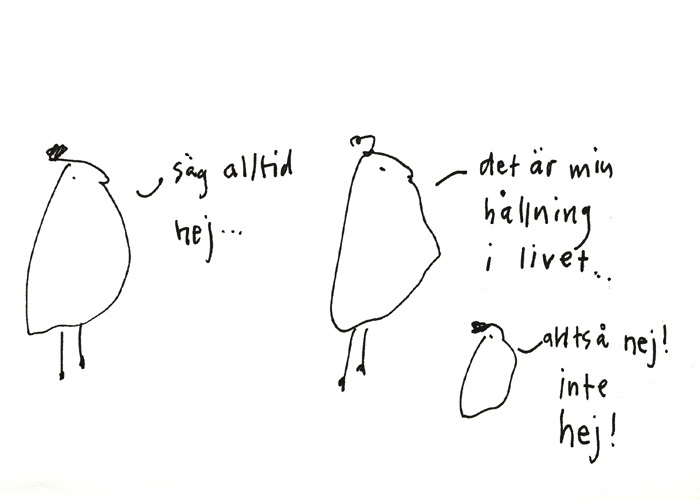 säg alltid
hej...
det är min
hållning
i livet...
alltså nej!
inte
hej!